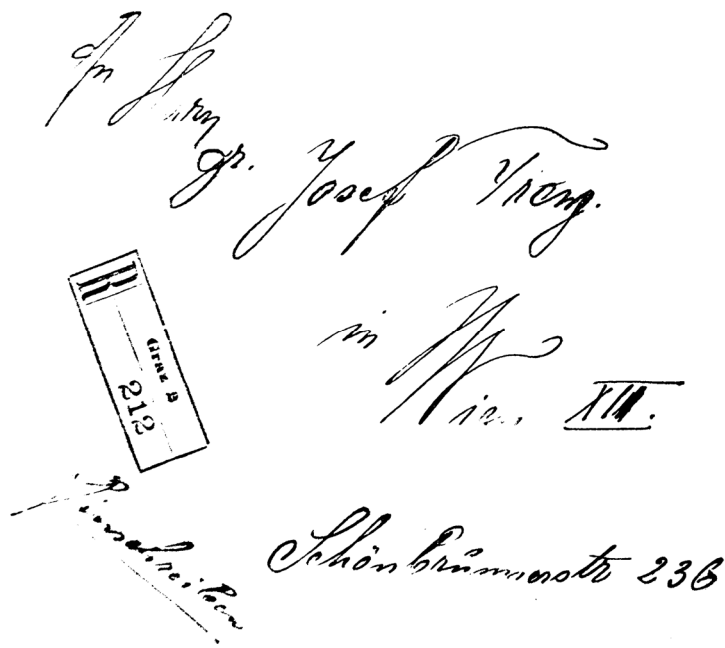 An Herrn
gr. Josef
in Wien XII.
R
Graz 2
212
Einschreiben
Schönbrunnerstr 236